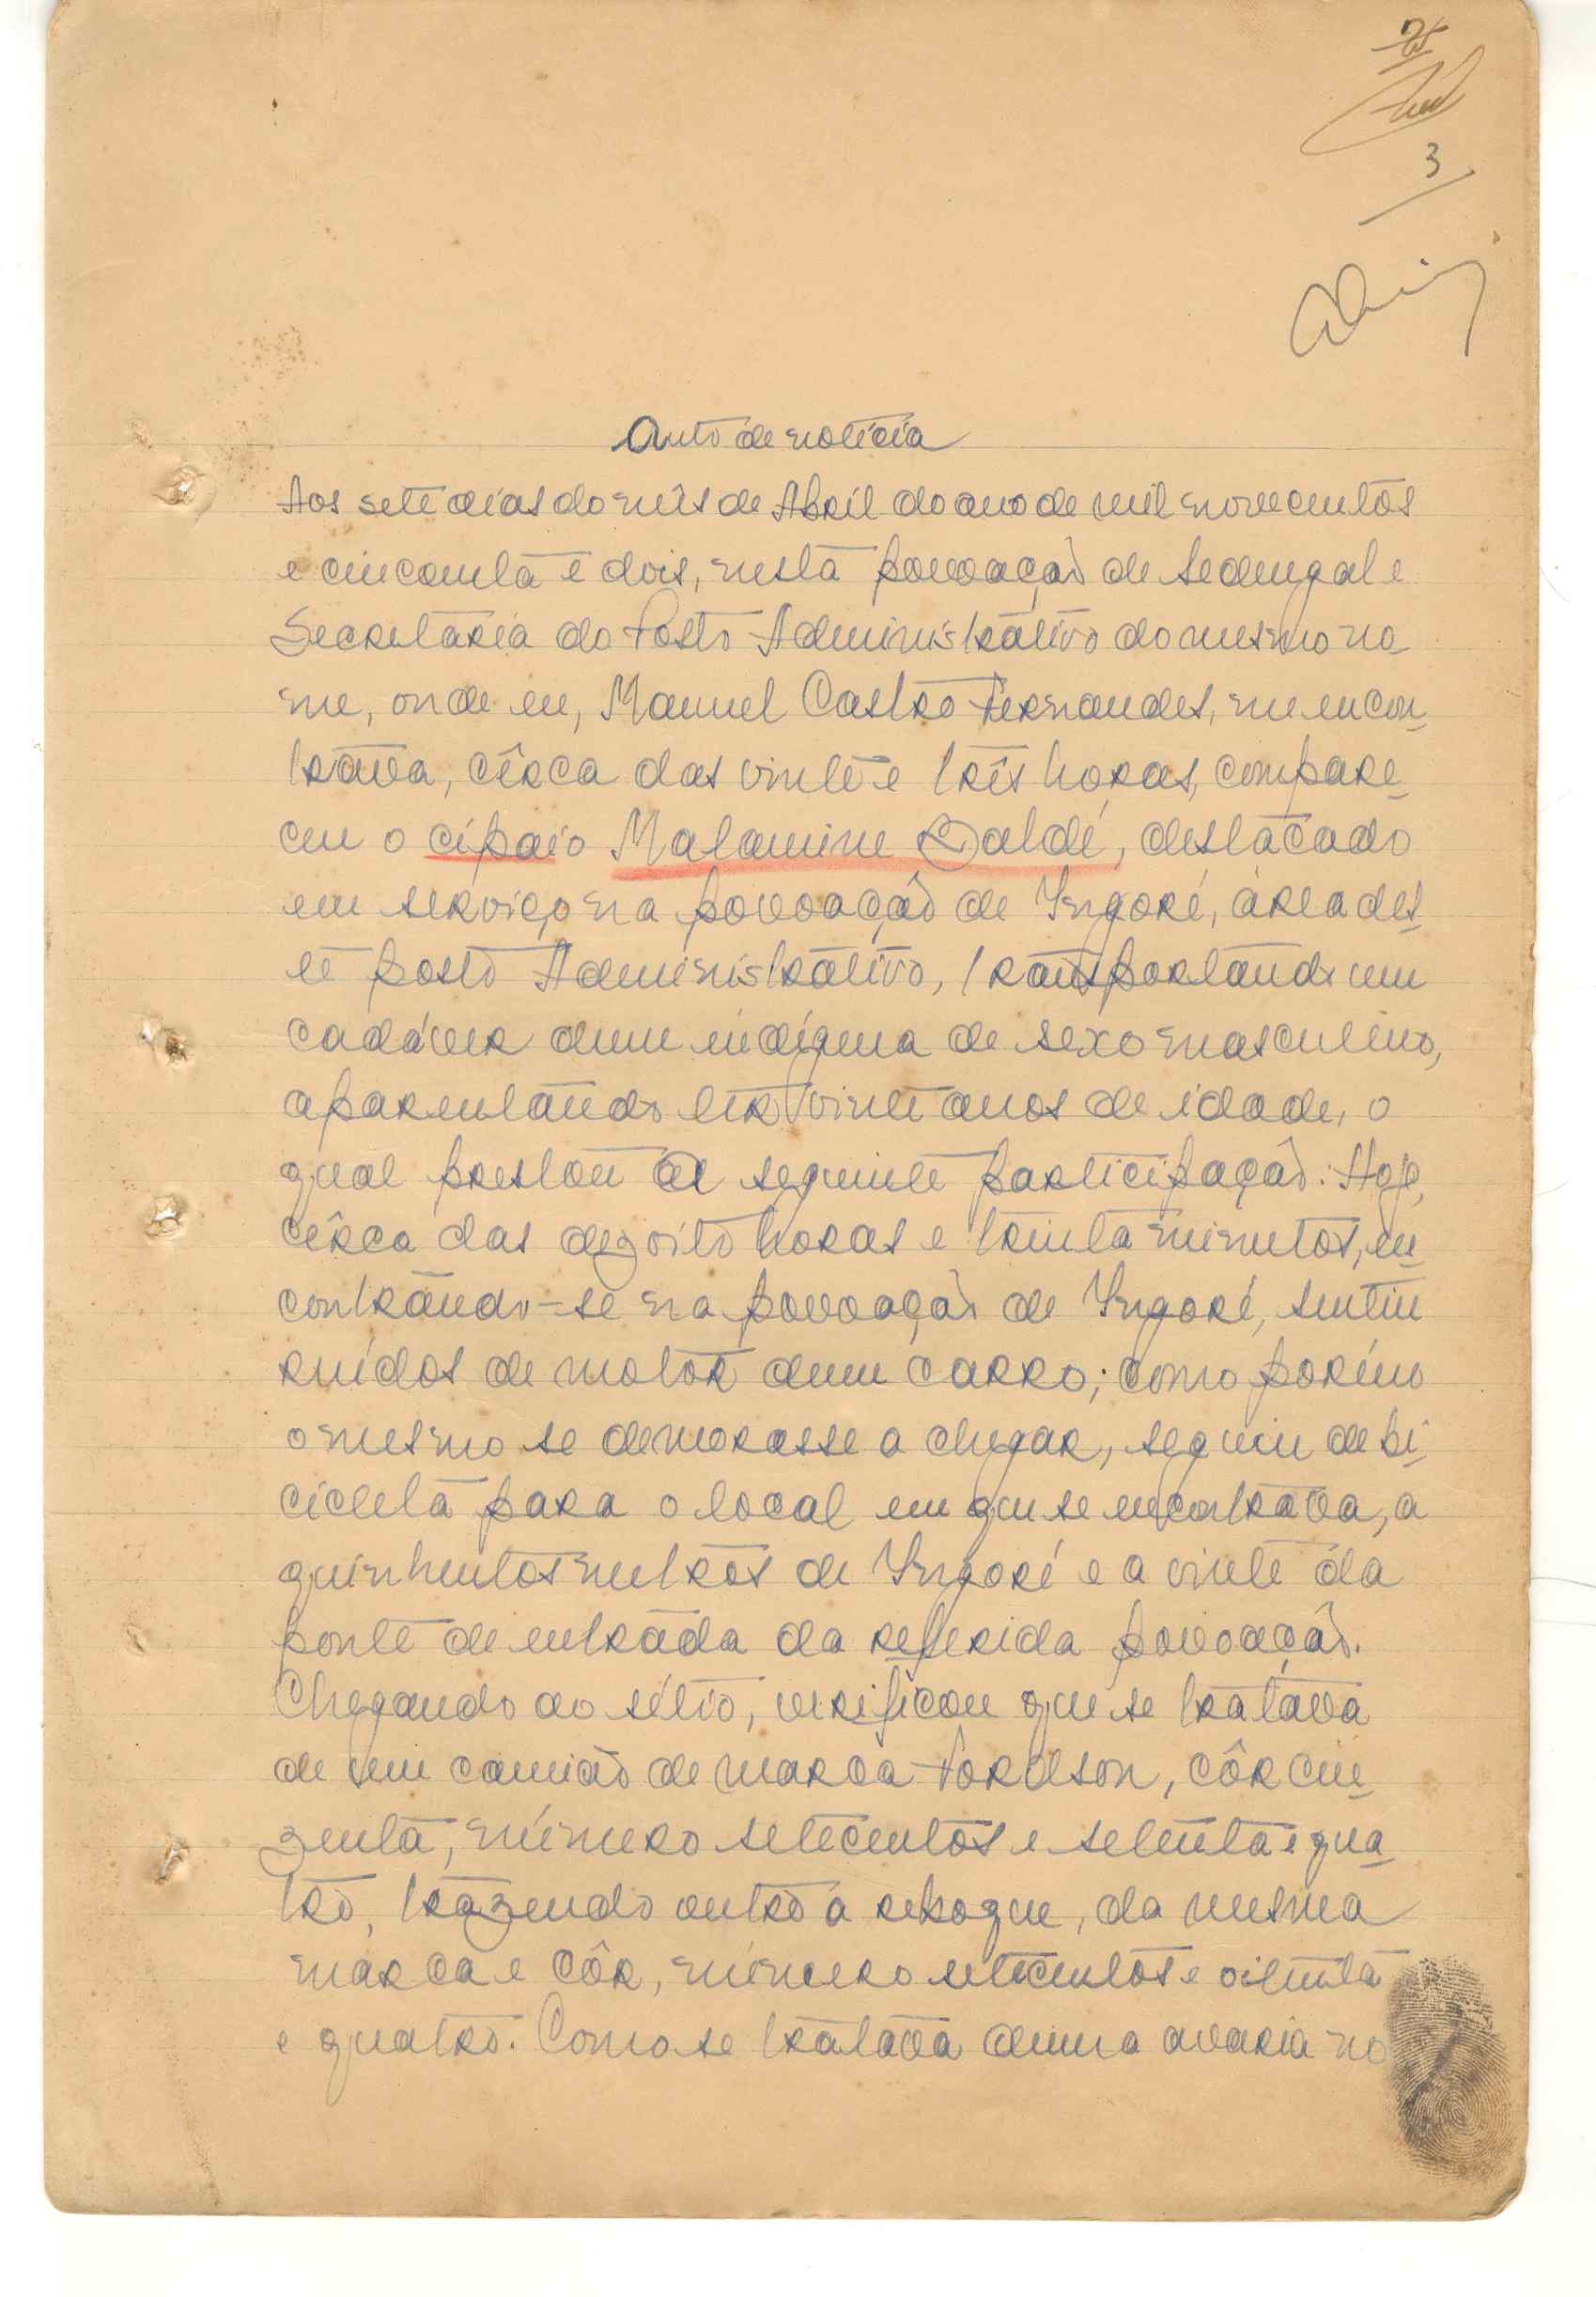 3
Auto de notícia
Aos sete dias do mês de Abril do ano de mil novecentos
e cincoenta e dois, nesta povoação de Sedengal e
Secretaria do Posto Administrativo do mesmo no
me, onde eu, Manuel Castro Fernandes, me encon
trava, cêrca das vinte e três horas, compare
ceu o cipaio Malamine Baldé, destacado
em serviço na povoação de Ingoré, área des
te posto Administrativo, transportando um
cadáver dum indígena de sexo masculino,
aparentando ter vinte anos de idade, o
qual prestou a seguinte participação: Hoje,
cêrca das dezoito horas e trinta minutos, en
contrando-se na povoação de Ingoré, sentiu
ruídos de motor dum carro; como porém o
o mesmo se demorasse a chegar, seguiu de bi
cicleta para o local em que se encontrava, a
quinhentos metros de Ingoré e a vinte da
ponte de entrada da referida povoação.
Chegando ao sítio, verificou que se tratava
de um camião de marca Fordson, côr cin
zenta, número setecentos e setenta e qua
tro, trazendo outro a reboque, da mesma
marca e côr, número setecentos e oitenta
e quatro. Como se tratava duma avaria no